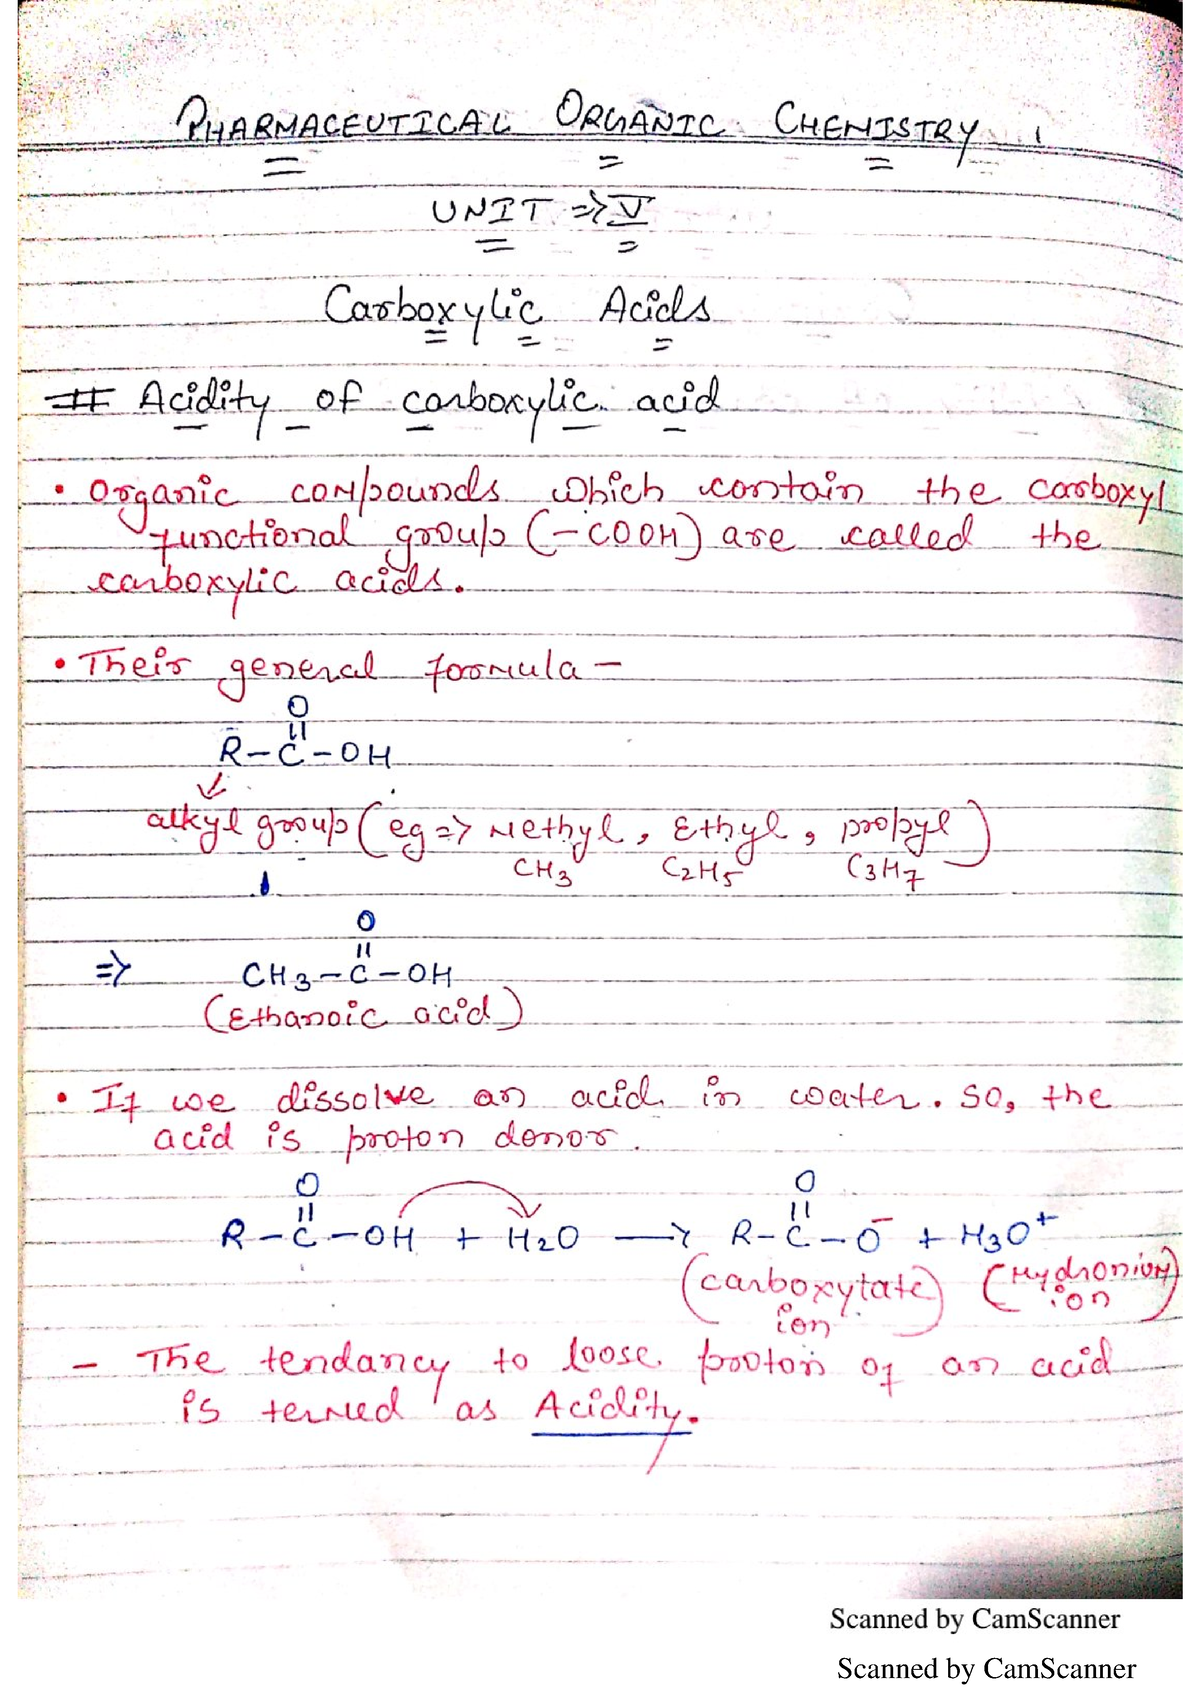 PHARMACEUTICAL ORGANIC CHEMISTRY 1
UNIT ⇒ V
Carboxylic Acids
# Acidity of carboxylic acid
• Organic compounds which contain the carboxyl
functional group (-COOH) are called the
carboxylic acids.
• Their general formula -
O
||
R-C-OH
alkyl group (eg ⇒ Methyl, Ethyl, propyl)
CH3 C2H5 C3H7
O
||
⇒ CH3-C-OH
(Ethanoic acid)
• If we dissolve an acid in water. so, the
acid is proton donor.
O O
|| ||
R-C-OH + H2O → R-C-O⁻ + H3O⁺
(carboxytate ion) (Hydronium ion)
- The tendancy to loose proton of an acid
is termed as Acidity.
Scanned by CamScanner
Scanned by CamScanner